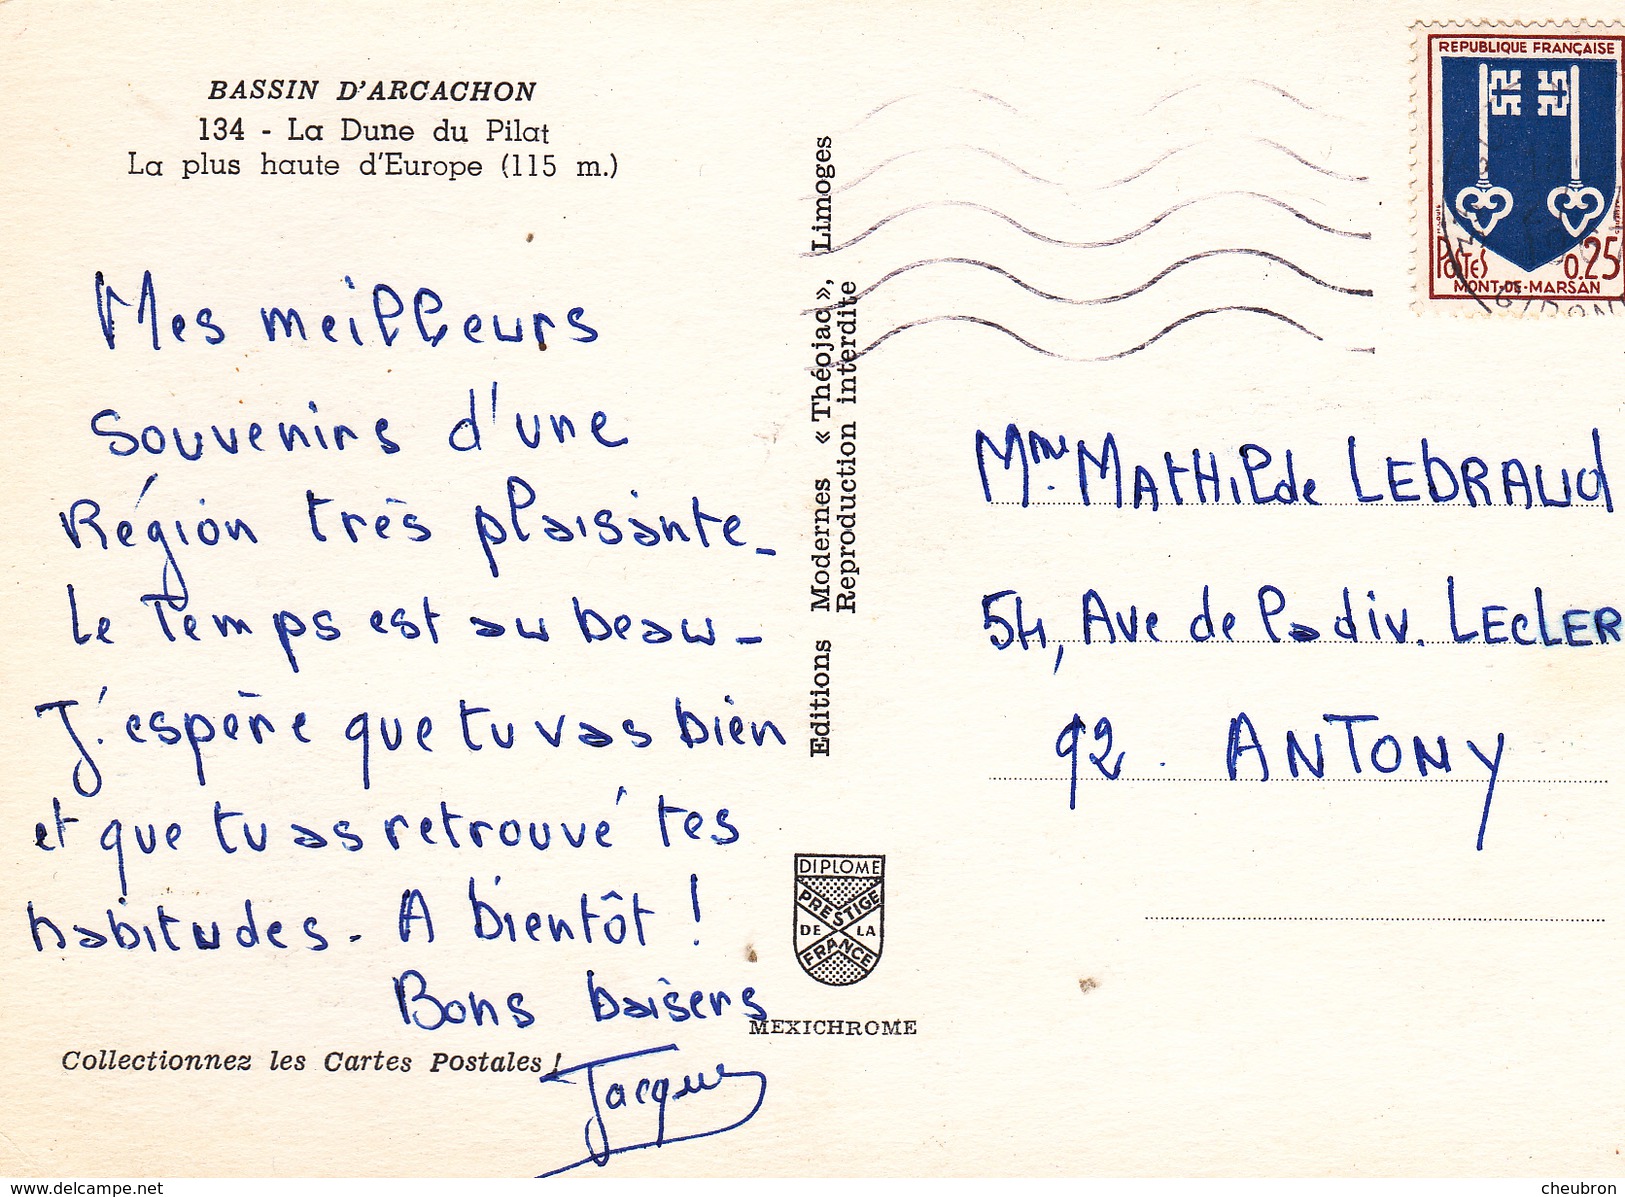 BASSIN D'ARCACHON
134 - La Dune du Pilat
La plus haute d'Europe (115 m.)
Mes meilleurs
souvenirs d'une
Région très plaisante_
Le Temps est au beau_
J'espère que tu vas bien
et que tu as retrouvé tes
habitudes. A bientôt !
Bons baisers
Jacques
Collectionnez les Cartes Postales !
Editions Modernes « Théojac », Limoges
Reproduction interdite
DIPLOME
PRESTIGE
DE LA
FRANCE
MEXICHROME
REPUBLIQUE FRANÇAISE
POSTES 0.25
MONT-DE-MARSAN
Mme MATHILde LEDRAUd
54, Ave de la div. LECLER
92. ANTONY
www.delcampe.net
cheubron